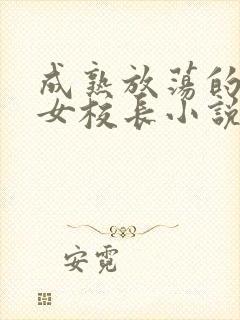 成熟放荡的
女校长小説
安霓